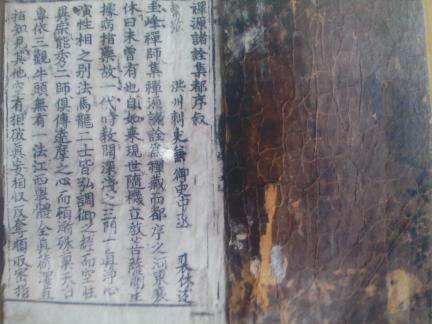 禪源諸詮集都序敘
洪州刺史兼御史中丞 裴休述
圭峰禪師集禪源諸詮爲禪藏而都序之河東裴
休曰未曾有也自如來現世隨機立教菩薩間生
據病指藥故一代時教開深淺之三門一真淨心
演性相之別法馬龍二士皆弘調御之說而空性
異宗能秀二師俱傳達摩之心而頓漸殊稟天台
專依三觀牛頭無有一法江西舉體全真荷澤直
指知見其他空有相破真妄相收反奪順取密指